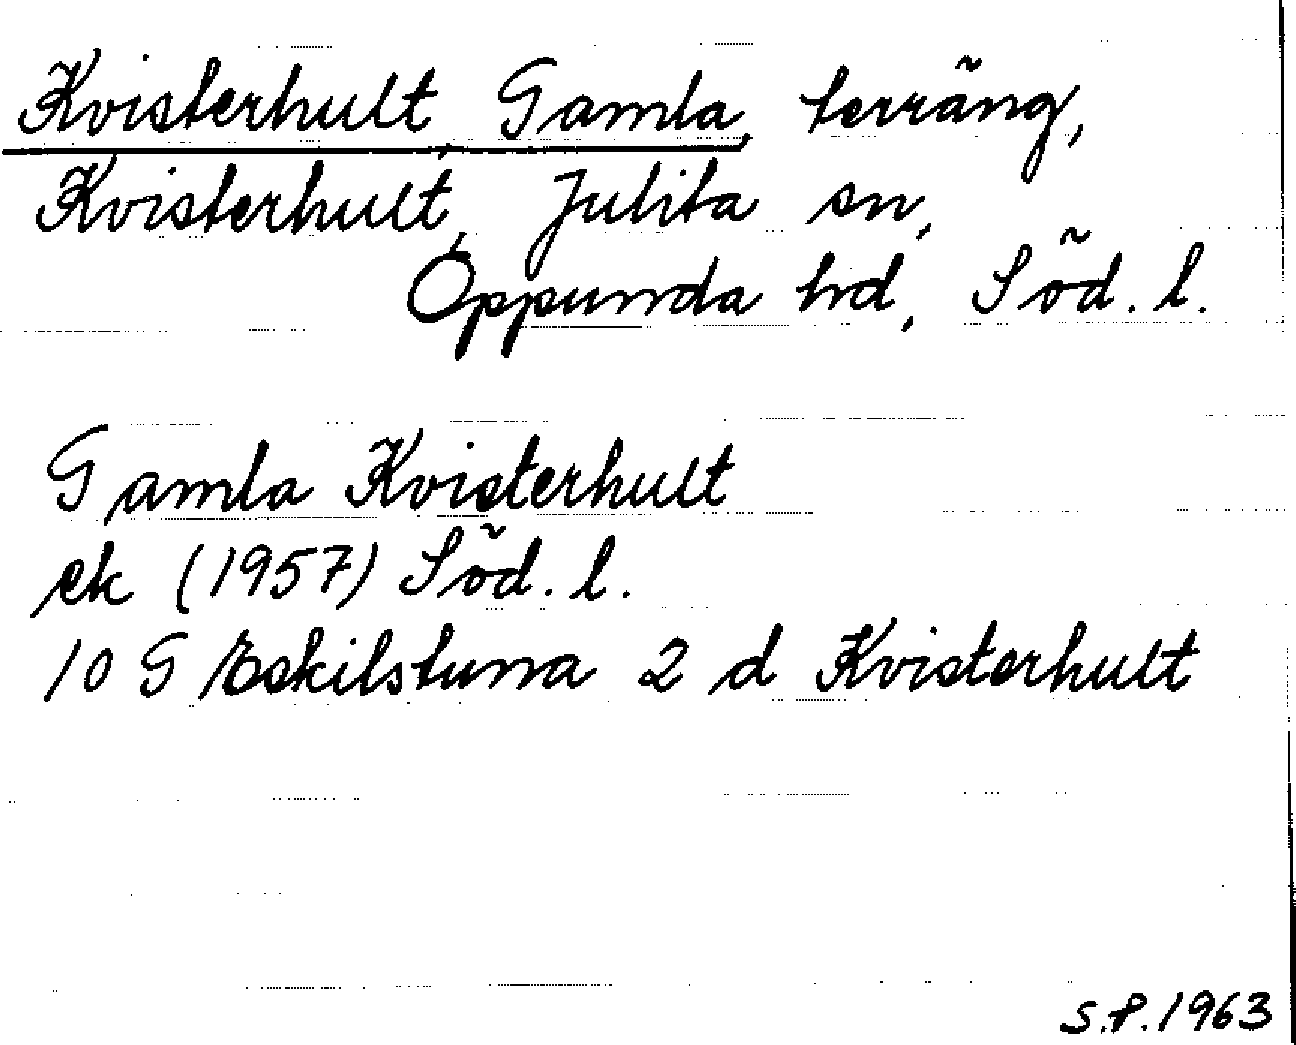 Kvisterhult, Gamla, terräng,
Kvisterhult, Julita sn,
Oppunda hd, Söd. l.
Gamla Kvisterhult
ek (1957) Söd. l.
10 G Eskilstuna 2 d Kvisterhult
S.P. 1963